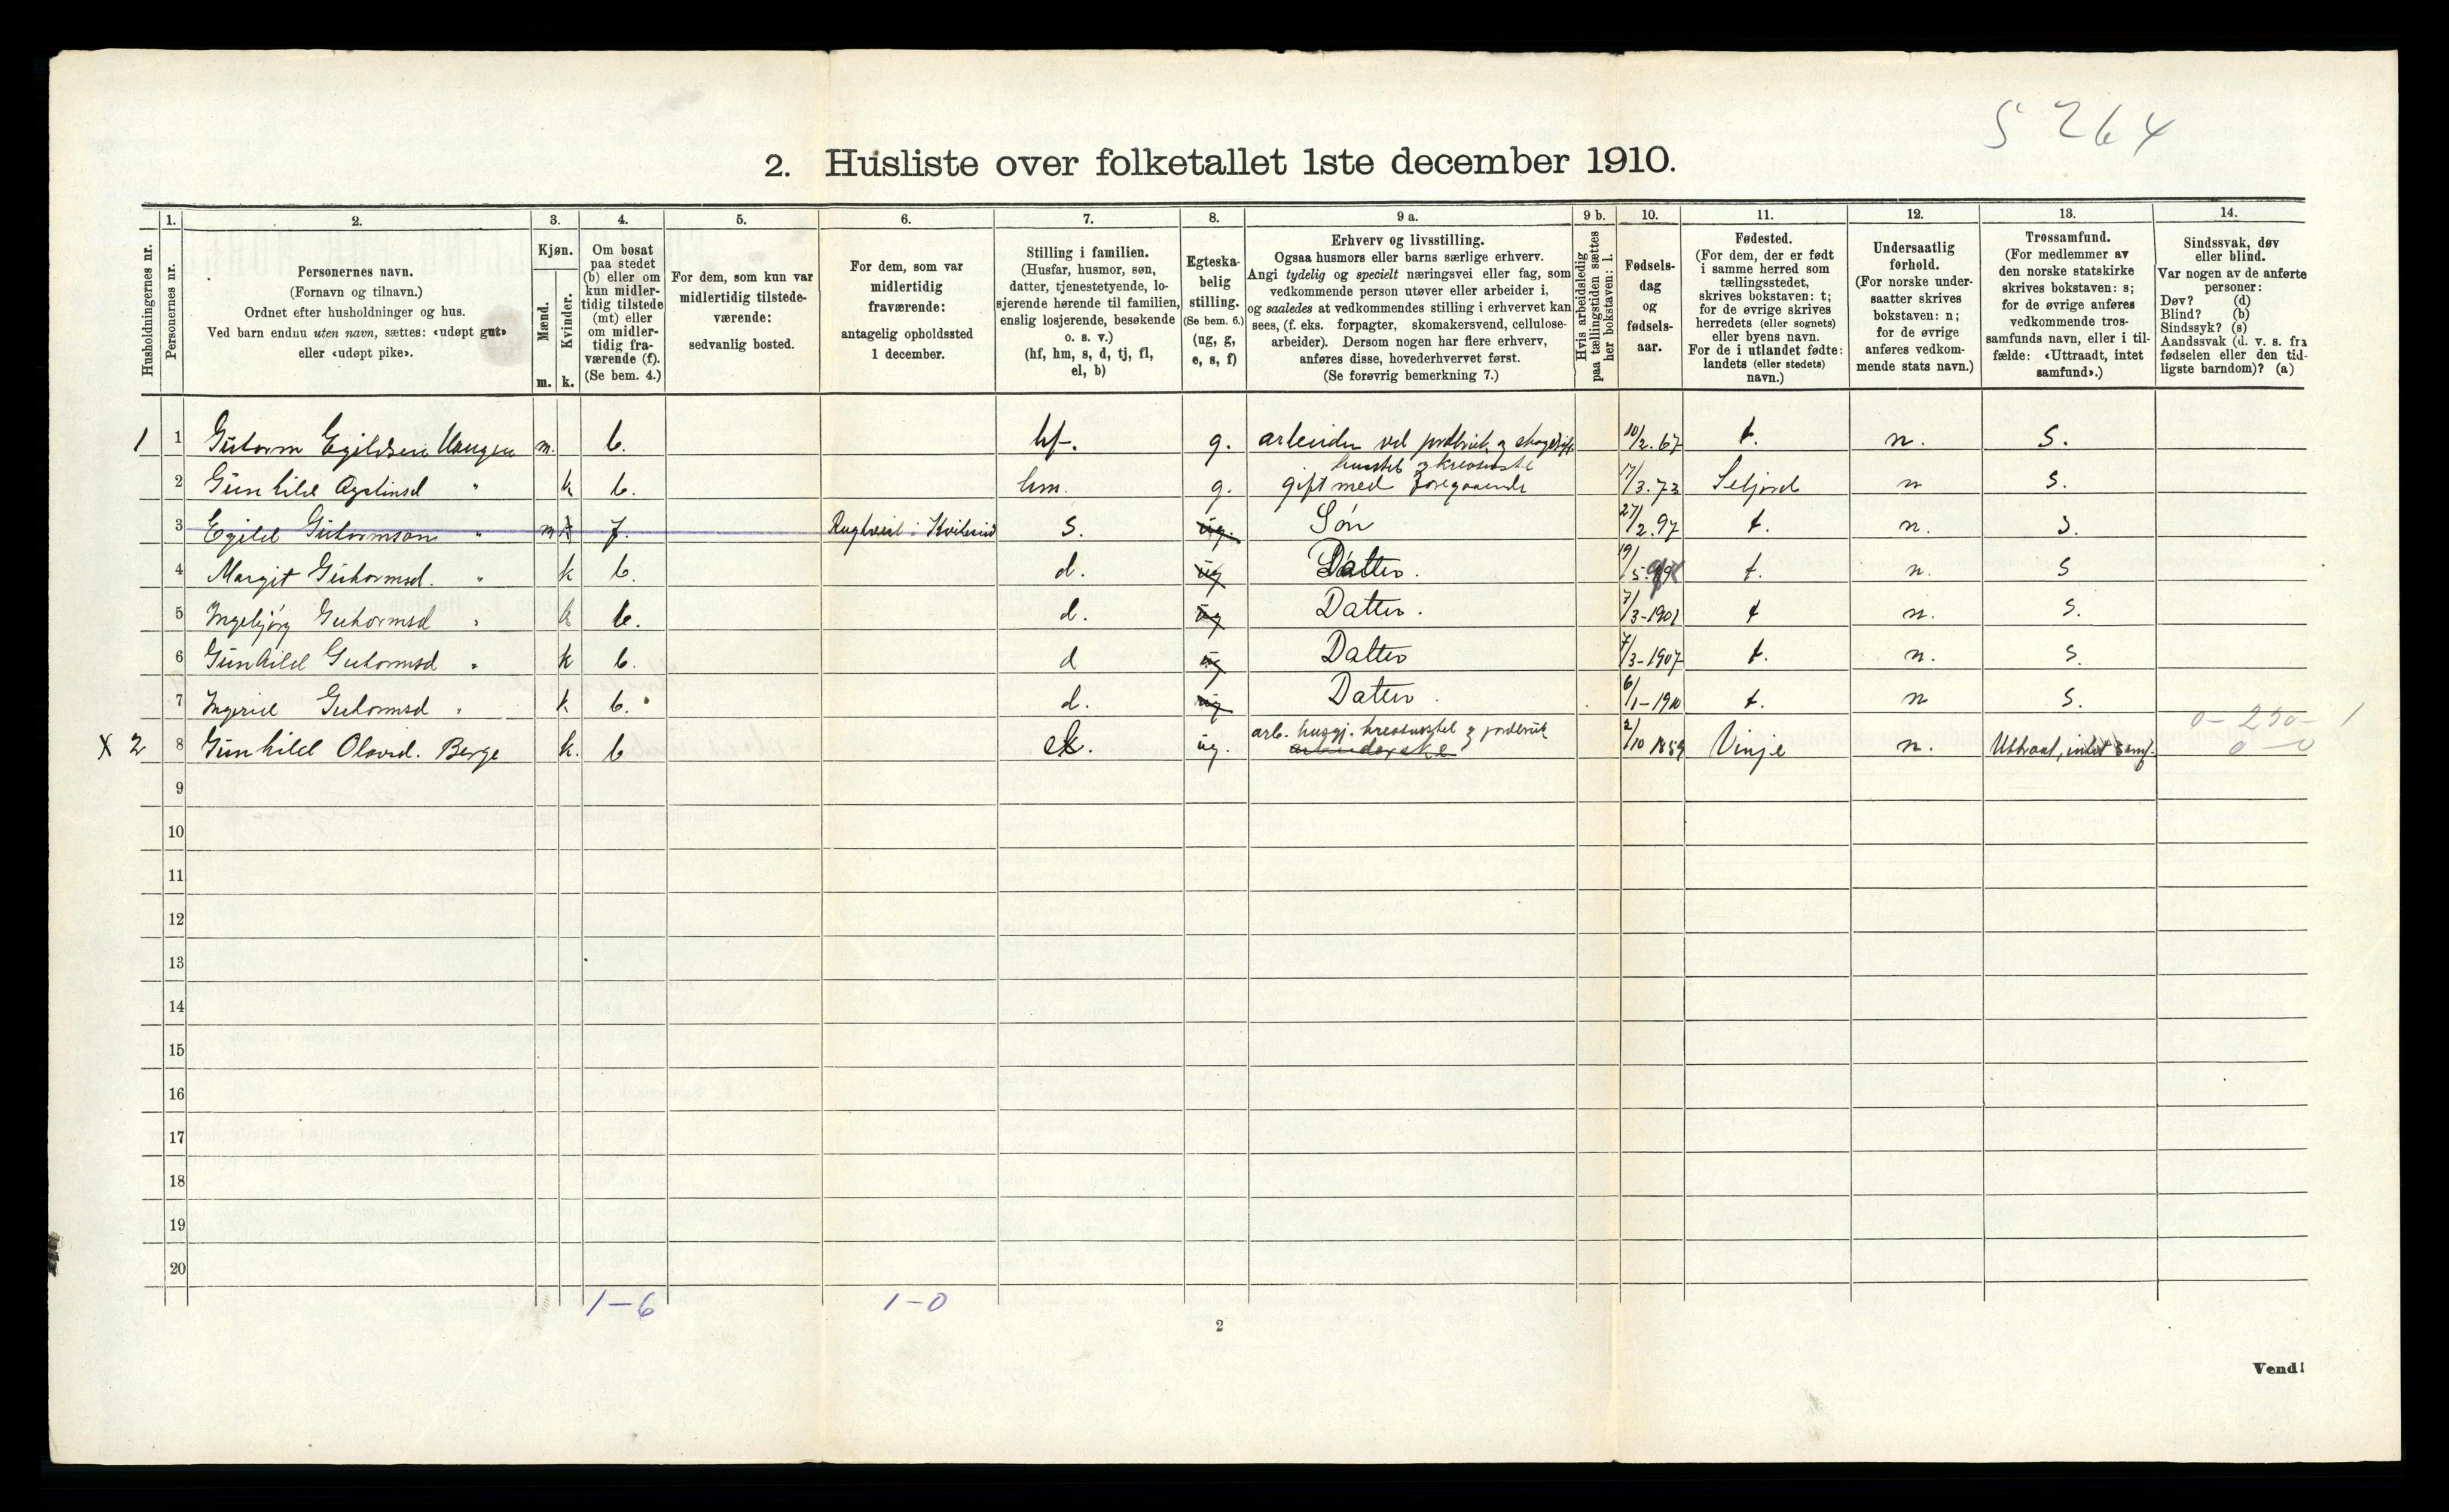 5264
2. Husliste over folketallet 1ste december 1910.
Husholdningernes nr.
1.
Personernes nr.
2.
Personernes navn.
(Fornavn og tilnavn.)
Ordnet efter husholdninger og hus.
Ved barn endnu uten navn, sættes: «udøpt gut»
eller «udøpt pike».
3.
Kjøn.
Mænd.
Kvinder.
m. k.
4.
Om bosat
paa stedet
(b) eller om
kun midler-
tidig tilstede
(mt) eller
om midler-
tidig fra-
værende (f).
(Se bem. 4.)
5.
For dem, som kun var
midlertidig tilstede-
værende:
sedvanlig bosted.
6.
For dem, som var
midlertidig
fraværende:
antagelig opholdssted
1 december.
7.
Stilling i familien.
(Husfar, husmor, søn,
datter, tjenestetyende, lo-
sjerende hørende til familien,
enslig losjerende, besøkende
o. s. v.)
(hf, hm, s, d, tj, fl,
el, b)
8.
Egteska-
belig
stilling.
(Se bem. 6.)
(ug, g,
e, s, f)
9 a.
Erhverv og livsstilling.
Ogsaa husmors eller barns særlige erhverv.
Angi tydelig og specielt næringsvei eller fag, som
vedkommende person utøver eller arbeider i,
og saaledes at vedkommendes stilling i erhvervet kan
sees, (f. eks. forpagter, skomakersvend, cellulose-
arbeider). Dersom nogen har flere erhverv,
anføres disse, hovederhvervet først.
(Se forøvrig bemerkning 7.)
9 b.
Hvis arbeidsledig
paa tællingstiden sættes
her bokstaven: l.
10.
Fødsels-
dag
og
fødsels-
aar.
11.
Fødested.
(For dem, der er født
i samme herred som
tællingsstedet,
skrives bokstaven: t;
for de øvrige skrives
herredets (eller sognets)
eller byens navn.
For de i utlandet fødte:
landets (eller stedets)
navn.)
12.
Undersaatlig
forhold.
(For norske under-
saatter skrives
bokstaven: n;
for de øvrige
anføres vedkom-
mende stats navn.)
13.
Trossamfund.
(For medlemmer av
den norske statskirke
skrives bokstaven: s;
for de øvrige anføres
vedkommende tros-
samfunds navn, eller i til-
fælde: «Uttraadt, intet
samfund».)
14.
Sindssvak, døv
eller blind.
Var nogen av de anførte
personer:
Døv? (d)
Blind? (b)
Sindssyk? (s)
Aandssvak (d. v. s. fra
fødselen eller den tid-
ligste barndom)? (a)
1 1 Gutorm Egildsen Haugen m. b. hf. g. arbeider ved jordbruk og skogdrift 10/2.67 t. n. s.
husstel og kreaturstel
2 Gunhild " k b. hm. g. gift med foregaaende 17/3.73 Seljord n s.
3 Egild Gutormson " m f. s. ug Søn 27/2.97 t. n. s.
4 Margit Guthormsd. " k b. d. ug Datter. 19/5. t. n. s
5 Ingebjørg Guthormsd " k b. d. ug Datter. 7/3-1901 t n. s.
6 Gunhild Gutormsd " k b. d ug Datter 7/3-1907 t. n. s.
7 Guthormsd " k b. d. ug Datter. 6/1-1910 t. n s.
0-250-1
arb. husgj. kreaturstel og jordbruk
X 2 8 Gunhild Olavsd. Berge k. b el. ug. arbeiderske 2/10 1859 Vinje n. Uttraat, intet samf. 0-0
9
10
11
12
13
14
15
16
17
18
19
20
1-6 1-0
2
Vend!